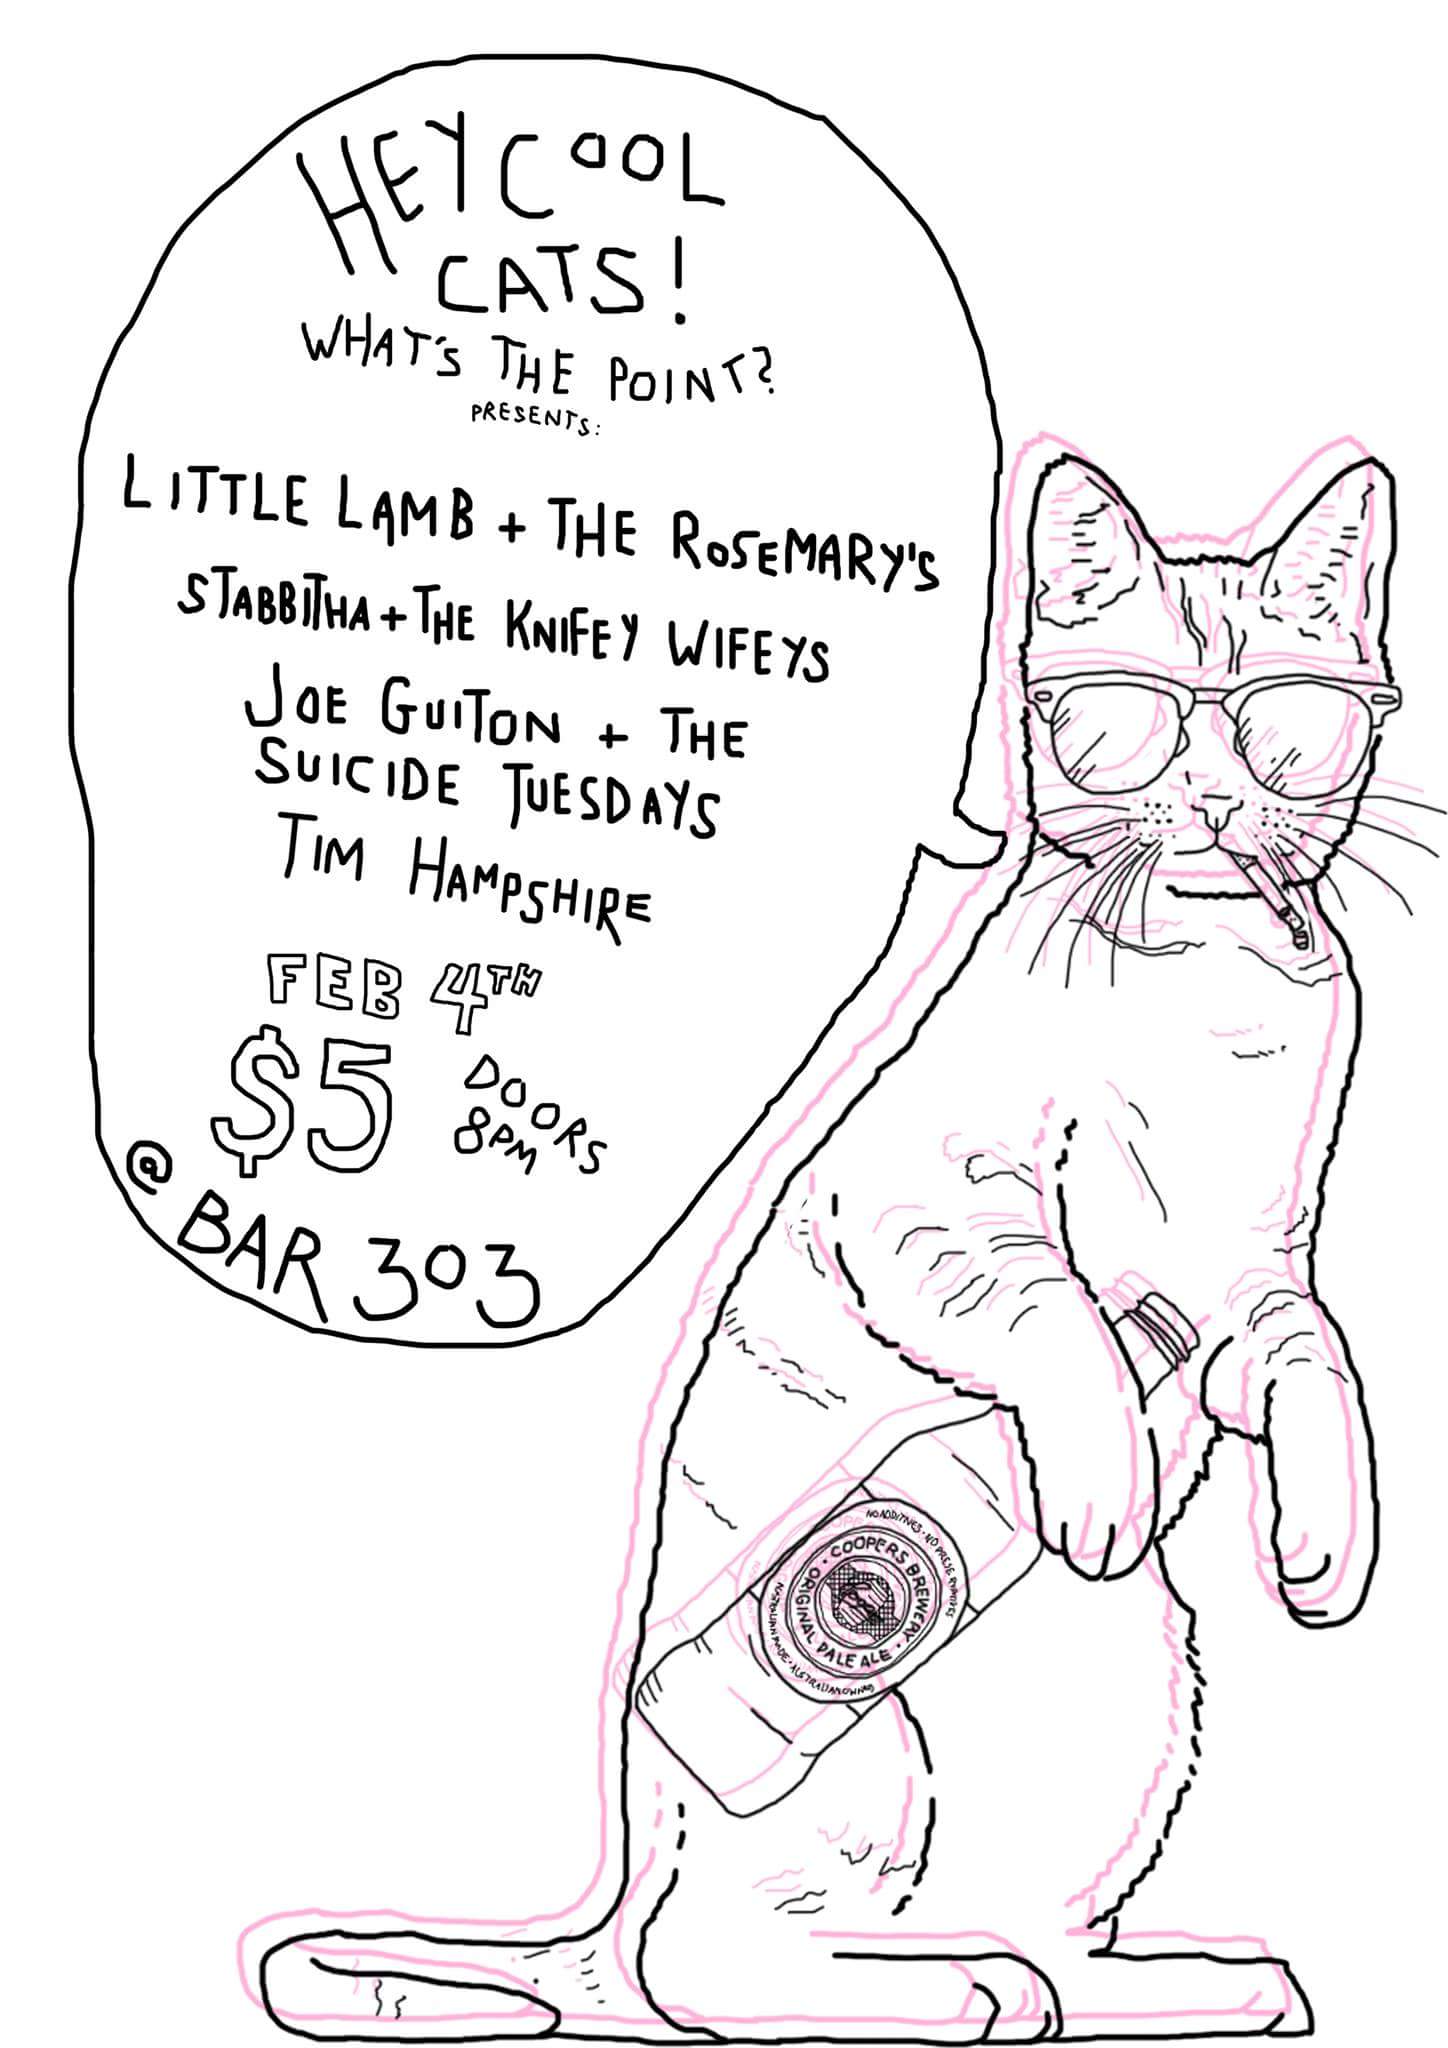 HEY COOL
CATS!
WHAT'S THE POINT?
PRESENTS:
LITTLE LAMB + THE ROSEMARY'S
STABBITHA + THE KNIFEY WIFEYS
JOE GUITON + THE
SUICIDE TUESDAYS
TIM HAMPSHIRE
FEB 4TH
$5 DOORS
8PM
@ BAR 303
NO ADDITIVES · NO PRESERVATIVES
· COOPERS BREWERY ·
ORIGINAL PALE ALE
AUSTRALIAN MADE · AUSTRALIAN OWNED